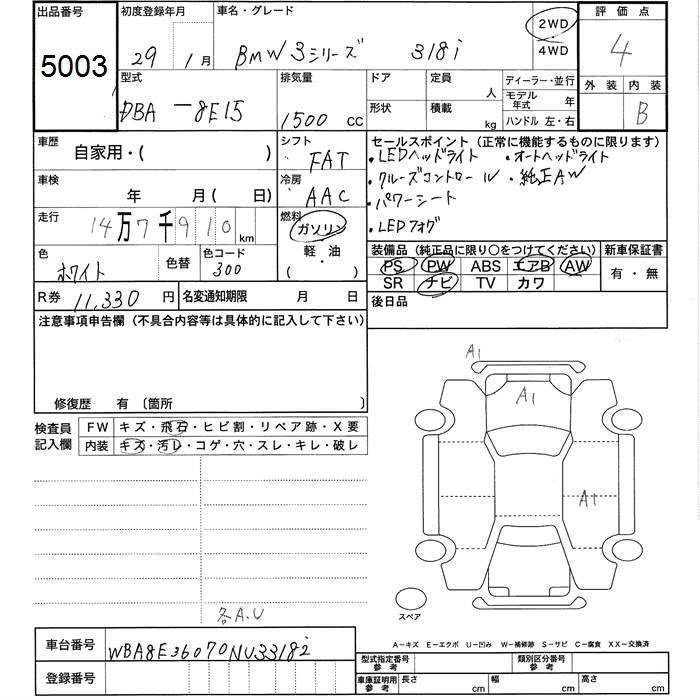 出品番号 初度登録年月 車名・グレード 2WD 評価点
5003 29年 1月 BMW 3シリーズ 318i 4WD 4
型式 排気量 ドア 定員 ディーラー・並行 外装 内装
DBA-8E15 1500cc 人 モデル年式 年 B
形状 積載 kg ハンドル 左・右
車歴 シフト セールスポイント (正常に機能するものに限ります)
自家用・( ) FAT ・LEDヘッドライト ・オートヘッドライト
車検 冷房 ・クルーズコントロール ・純正AW
年 月( 日) AAC ・パワーシート
走行 燃料 ・LEDフォグ
14万7千910km ガソリン
軽・油
( )
色 色替 色コード 装備品 (純正品に限り○をつけてください) 新車保証書
ホワイト 300 PS PW ABS エアB AW 有・無
SR ナビ TV カワ
R券 11,330円 名変通知期限 月 日 後日品
注意事項申告欄 (不具合内容等は具体的に記入して下さい)
A1
A1
修復歴 有 (箇所 )
検査員記入欄 FW キズ・飛石・ヒビ割・リペア跡・X要
内装 キズ・汚レ・コゲ・穴・スレ・キレ・破レ
A1
スペア
各A.U
A-キズ E-エクボ U-凹み W-補修跡 S-サビ C-腐食 XX-交換済
車台番号 WBA8E36070NU33182
登録番号
型式指定番号 参考 類別区分番号 参考
車庫証明用 参考 長さ cm 幅 cm 高さ cm